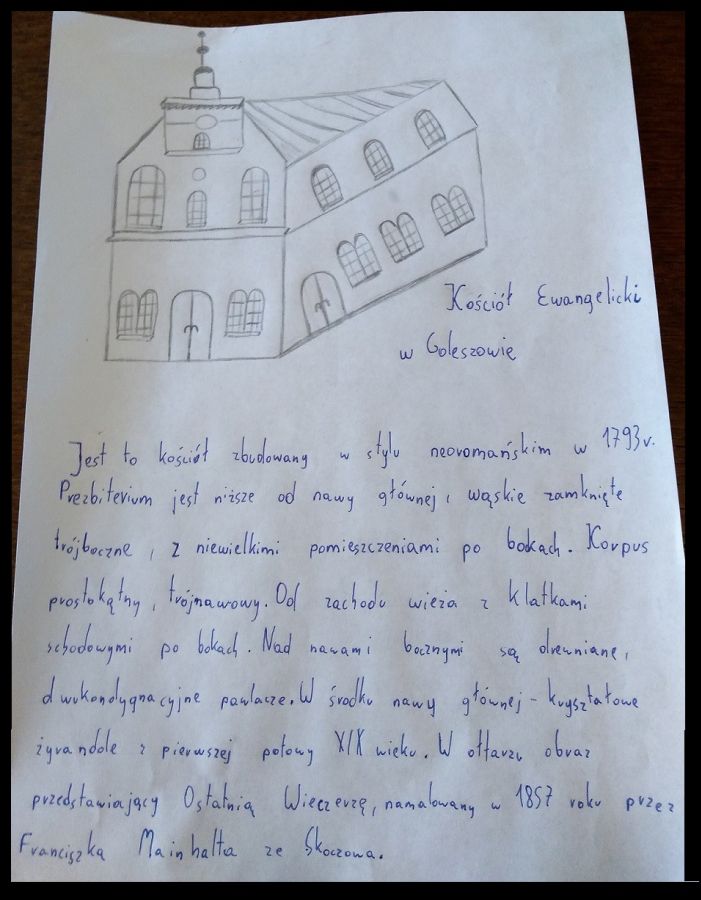 Kościół Ewangelicki
w Goleszowie
Jest to kościół zbudowany w stylu neoromańskim w 1793r.
Prezbiterium jest niższe od nawy głównej i wąskie zamknięte
trójboczne, z niewielkimi pomieszczeniami po bokach. Korpus
prostokątny, trójnawowy. Od zachodu wieża z klatkami
schodowymi po bokach. Nad nawami bocznymi są drewniane,
dwukondygnacyjne pawlacze. W środku nawy głównej - kryształowe
żyrandole z pierwszej połowy XIX wieku. W ołtarzu obraz
przedstawiający Ostatnią Wieczerzę, namalowany w 1857 roku przez
Franciszka Mainhalta ze Skoczowa.